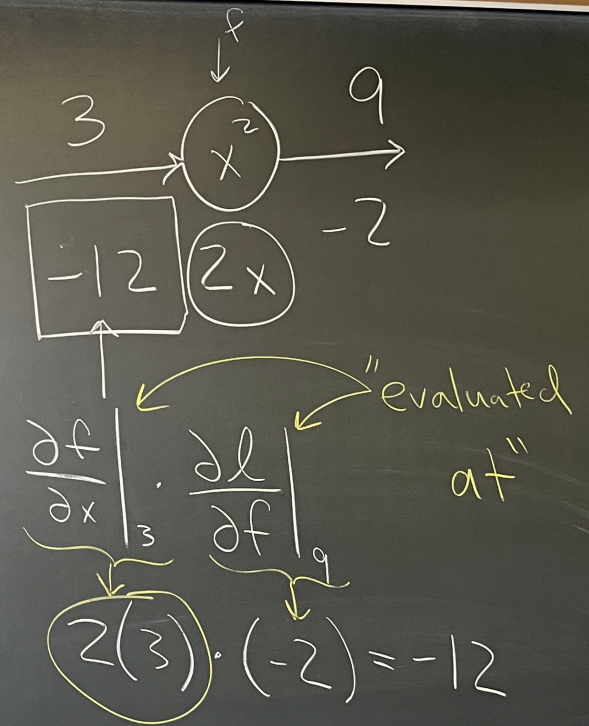 f
3 x² 9
-12 2x -2
"evaluated
at"
∂f/∂x |₃ · ∂l/∂f |₉
2(3) · (-2) = -12